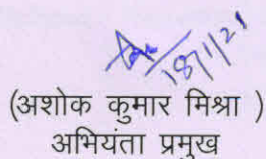 18/1/21
(अशोक कुमार मिश्रा )
अभियंता प्रमुख